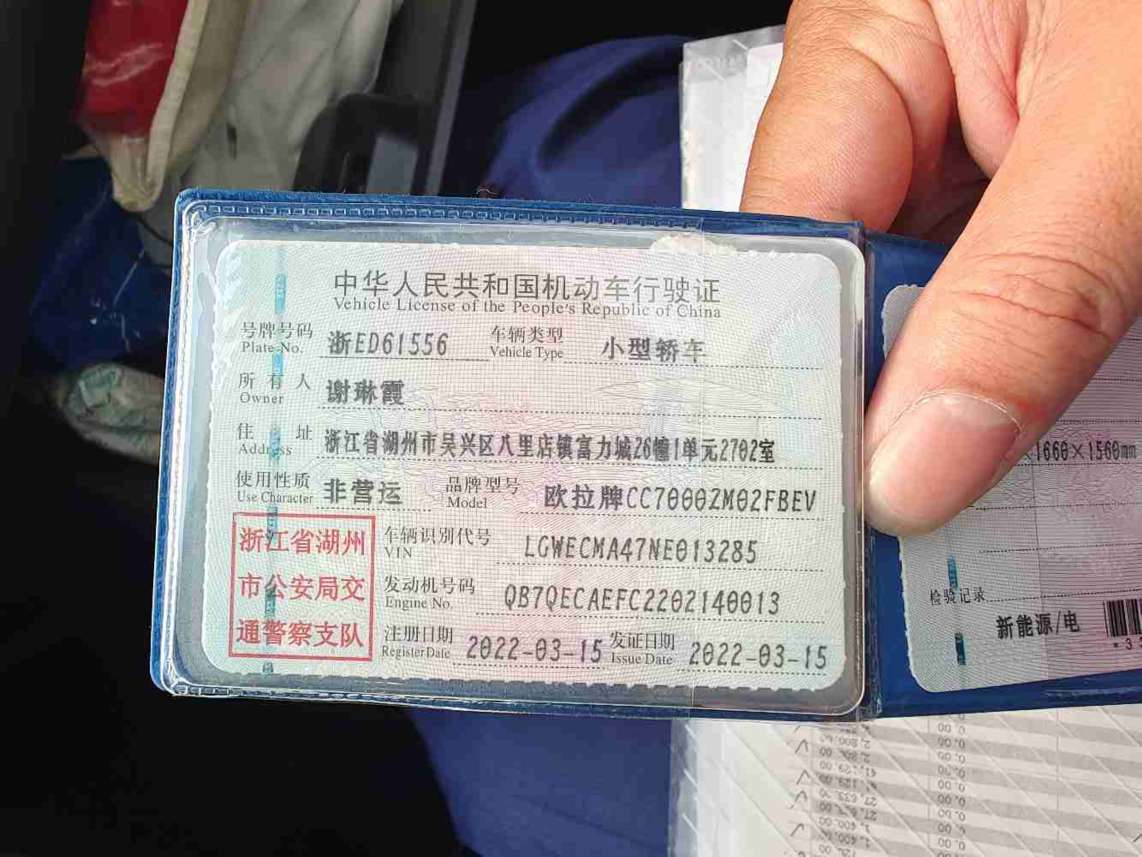 中华人民共和国机动车行驶证
Vehicle License of the People's Republic of China
号牌号码 浙ED61556 车辆类型 小型轿车
Plate No. Vehicle Type
所有人 谢琳霞
Owner
住址 浙江省湖州市吴兴区八里店镇富力城26幢1单元2702室
Address
使用性质 非营运 品牌型号 欧拉牌CC7000ZM02FBEV
Use Character Model
浙江省湖州
市公安局交
通警察支队
车辆识别代号 LGWECMA47NE013285
VIN
发动机号码 QB7QECAEFC2202140013
Engine No.
注册日期 2022-03-15 发证日期 2022-03-15
Register Date Issue Date
×1660×1560mm
检验记录
新能源/电